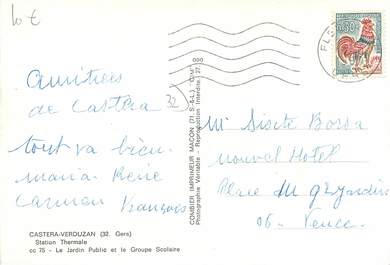 10 €
Amitiées
de Castéra 32
tout va bien
maria-Reine
Carmen François
CASTERA-VERDUZAN (32. Gers)
Station Thermale
cc 75 - Le Jardin Public et le Groupe Scolaire
COMBIER IMPRIMEUR MACON (71. S.-&-L.) "CIM"
Photographie Véritable - Reproduction Interdite. 27
000
0,30
Mr Sixte Borsa
nouvel Hotel
Place du gd Jardin
06 - Vence